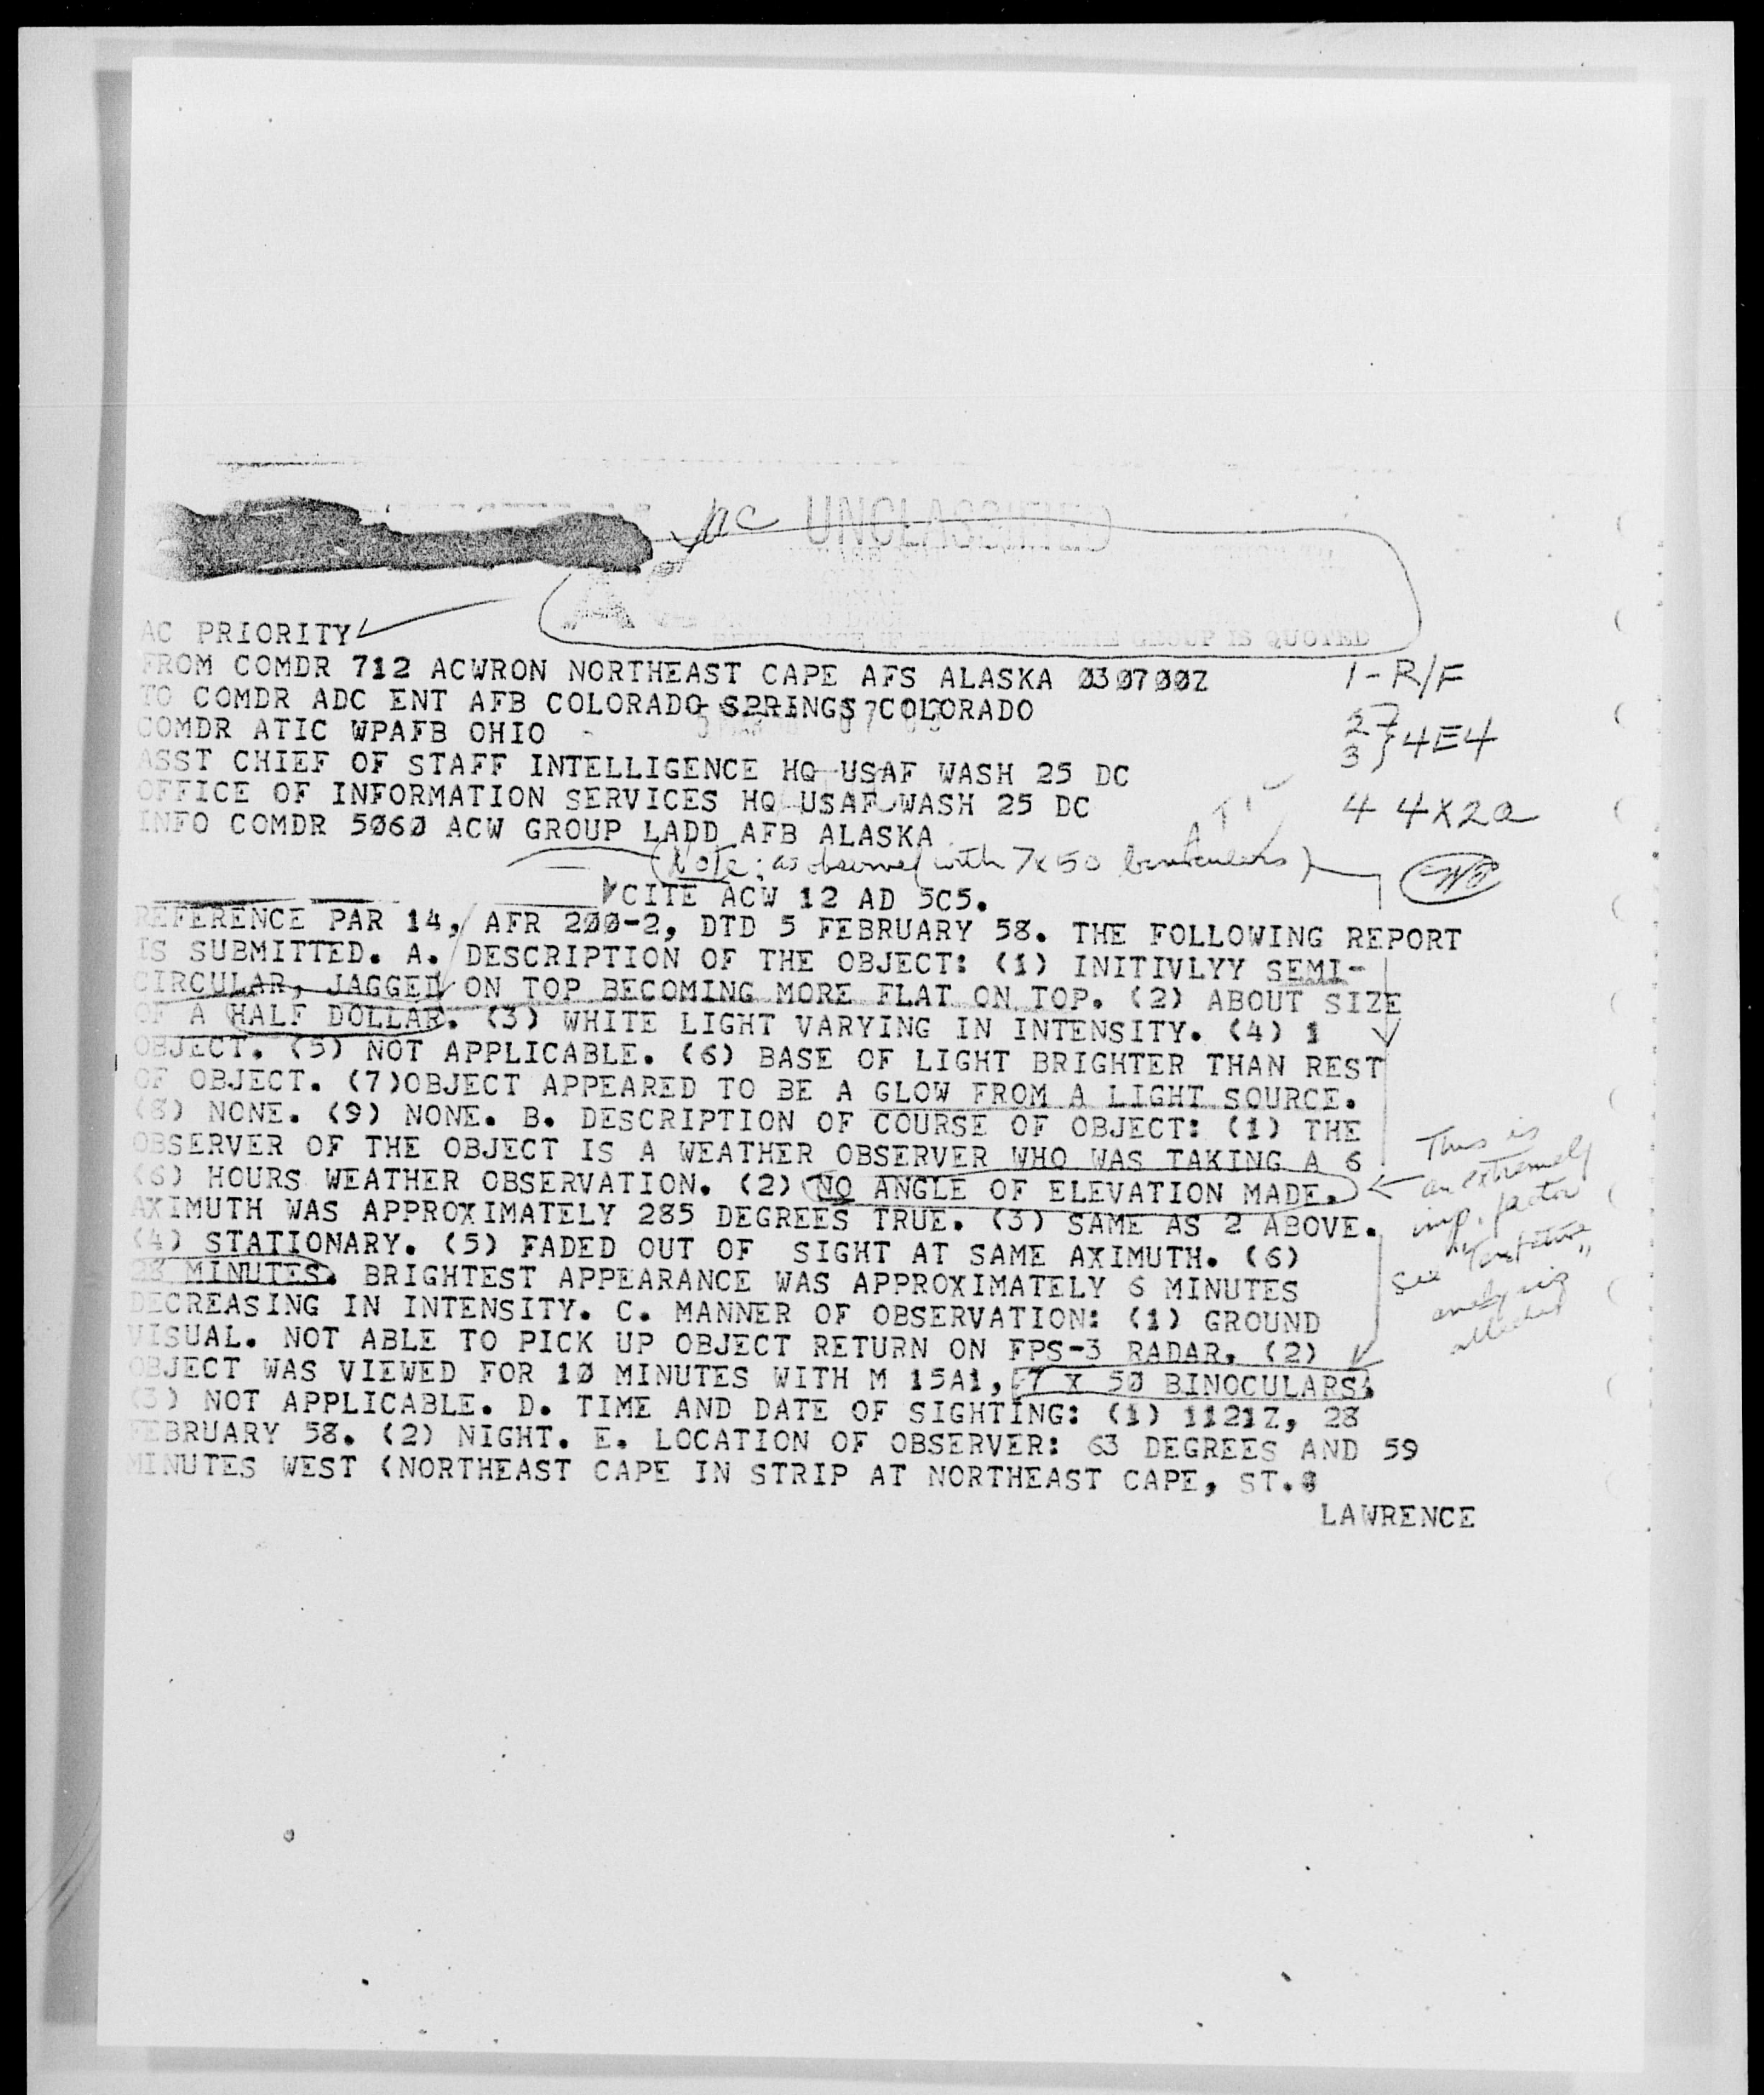 UNCLASSIFIED
GROUP IS QUOTED
AC PRIORITY
FROM COMDR 712 ACWRON NORTHEAST CAPE AFS ALASKA 030700Z
1-R/F
TO COMDR ADC ENT AFB COLORADO SPRINGS COLORADO
COMDR ATIC WPAFB OHIO
2 3 } 4E4
ASST CHIEF OF STAFF INTELLIGENCE HQ USAF WASH 25 DC
OFFICE OF INFORMATION SERVICES HQ USAF WASH 25 DC
4 4X2a
INFO COMDR 5060 ACW GROUP LADD AFB ALASKA
(Note: as observed with 7x50 binoculars)
CITE ACW 12 AD 5C5.
REFERENCE PAR 14, AFR 200-2, DTD 5 FEBRUARY 58. THE FOLLOWING REPORT
IS SUBMITTED. A. DESCRIPTION OF THE OBJECT: (1) INITIVLYY SEMI-
CIRCULAR, JAGGED ON TOP BECOMING MORE FLAT ON TOP. (2) ABOUT SIZE
OF A HALF DOLLAR. (3) WHITE LIGHT VARYING IN INTENSITY. (4) 1
OBJECT. (5) NOT APPLICABLE. (6) BASE OF LIGHT BRIGHTER THAN REST
OF OBJECT. (7)OBJECT APPEARED TO BE A GLOW FROM A LIGHT SOURCE.
(8) NONE. (9) NONE. B. DESCRIPTION OF COURSE OF OBJECT: (1) THE
OBSERVER OF THE OBJECT IS A WEATHER OBSERVER WHO WAS TAKING A 6
(6) HOURS WEATHER OBSERVATION. (2) NO ANGLE OF ELEVATION MADE.
AXIMUTH WAS APPROXIMATELY 285 DEGREES TRUE. (3) SAME AS 2 ABOVE.
(4) STATIONARY. (5) FADED OUT OF SIGHT AT SAME AXIMUTH. (6)
28 MINUTES. BRIGHTEST APPEARANCE WAS APPROXIMATELY 6 MINUTES
DECREASING IN INTENSITY. C. MANNER OF OBSERVATION: (1) GROUND
VISUAL. NOT ABLE TO PICK UP OBJECT RETURN ON FPS-3 RADAR. (2)
OBJECT WAS VIEWED FOR 10 MINUTES WITH M 15A1, 7 X 50 BINOCULARS.
(3) NOT APPLICABLE. D. TIME AND DATE OF SIGHTING: (1) 1121Z, 28
FEBRUARY 58. (2) NIGHT. E. LOCATION OF OBSERVER: 63 DEGREES AND 59
MINUTES WEST (NORTHEAST CAPE IN STRIP AT NORTHEAST CAPE, ST.
LAWRENCE
This is
an extremely
imp. factor
See "Tentative"
analysis
attached